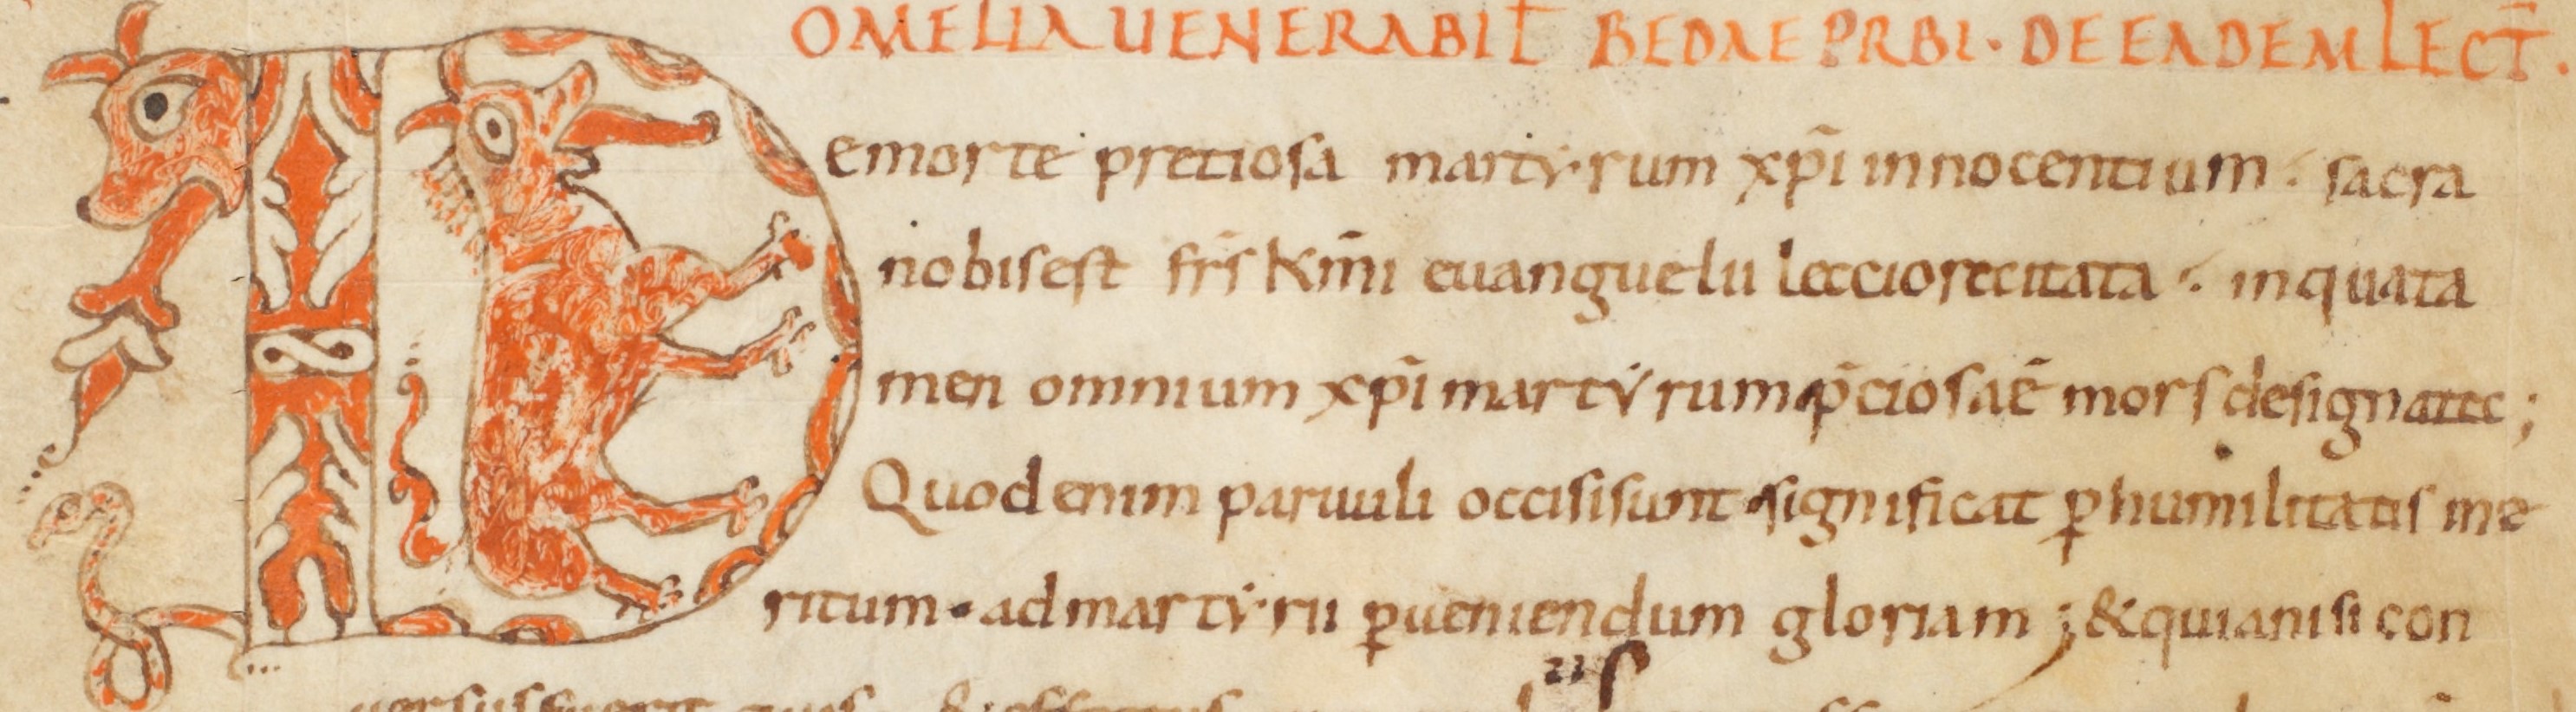 OMELIA UENERABIL̄ BEDAE PRBI · DE EADEM LECT̄.
De morte pretiosa martyrum xp̄i innocentium · sacra
nobis est fr̄s km̄i euanguelii leccio recitata · in qua ta
men omnium xp̄i martyrum p̄ciosa ē mors designatec ;
Quod enim paruuli occisi sunt · significat ꝑ humilitatis me
ritum · ad martyrii ꝑueniendum gloriam ; & quia nisi con
uersus fuerit quis